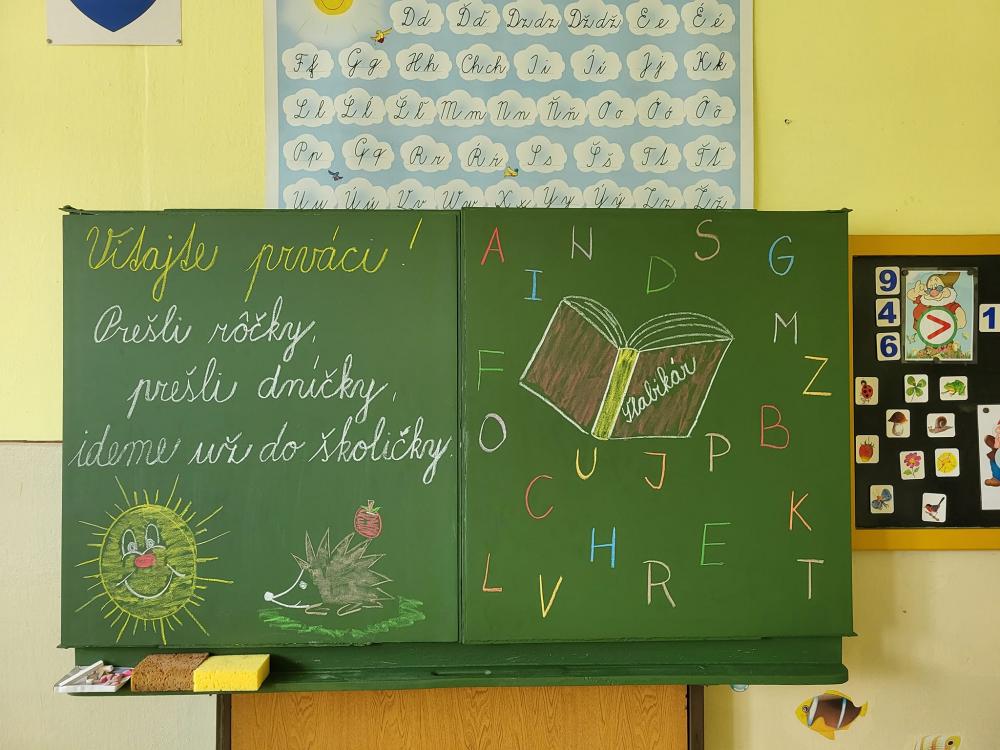 D d Ď ď Dz dz Dž dž E e É é
F f G g H h Ch ch I i Í í J j K k
L l Ĺ ĺ Ľ ľ M m N n Ň ň O o Ó ó Ô ô
P p Q q R r Ŕ ŕ S s Š š T t Ť ť
U u Ú ú V v W w X x Y y Ý ý Z z Ž ž
Vitajte prváci!
Prešli rôčky,
prešli dníčky,
ideme už do školičky.
A N S G
I D
M
F Z
Šlabikár
O B
U J P
C K
H E
L V R T
9
4 > 1
6